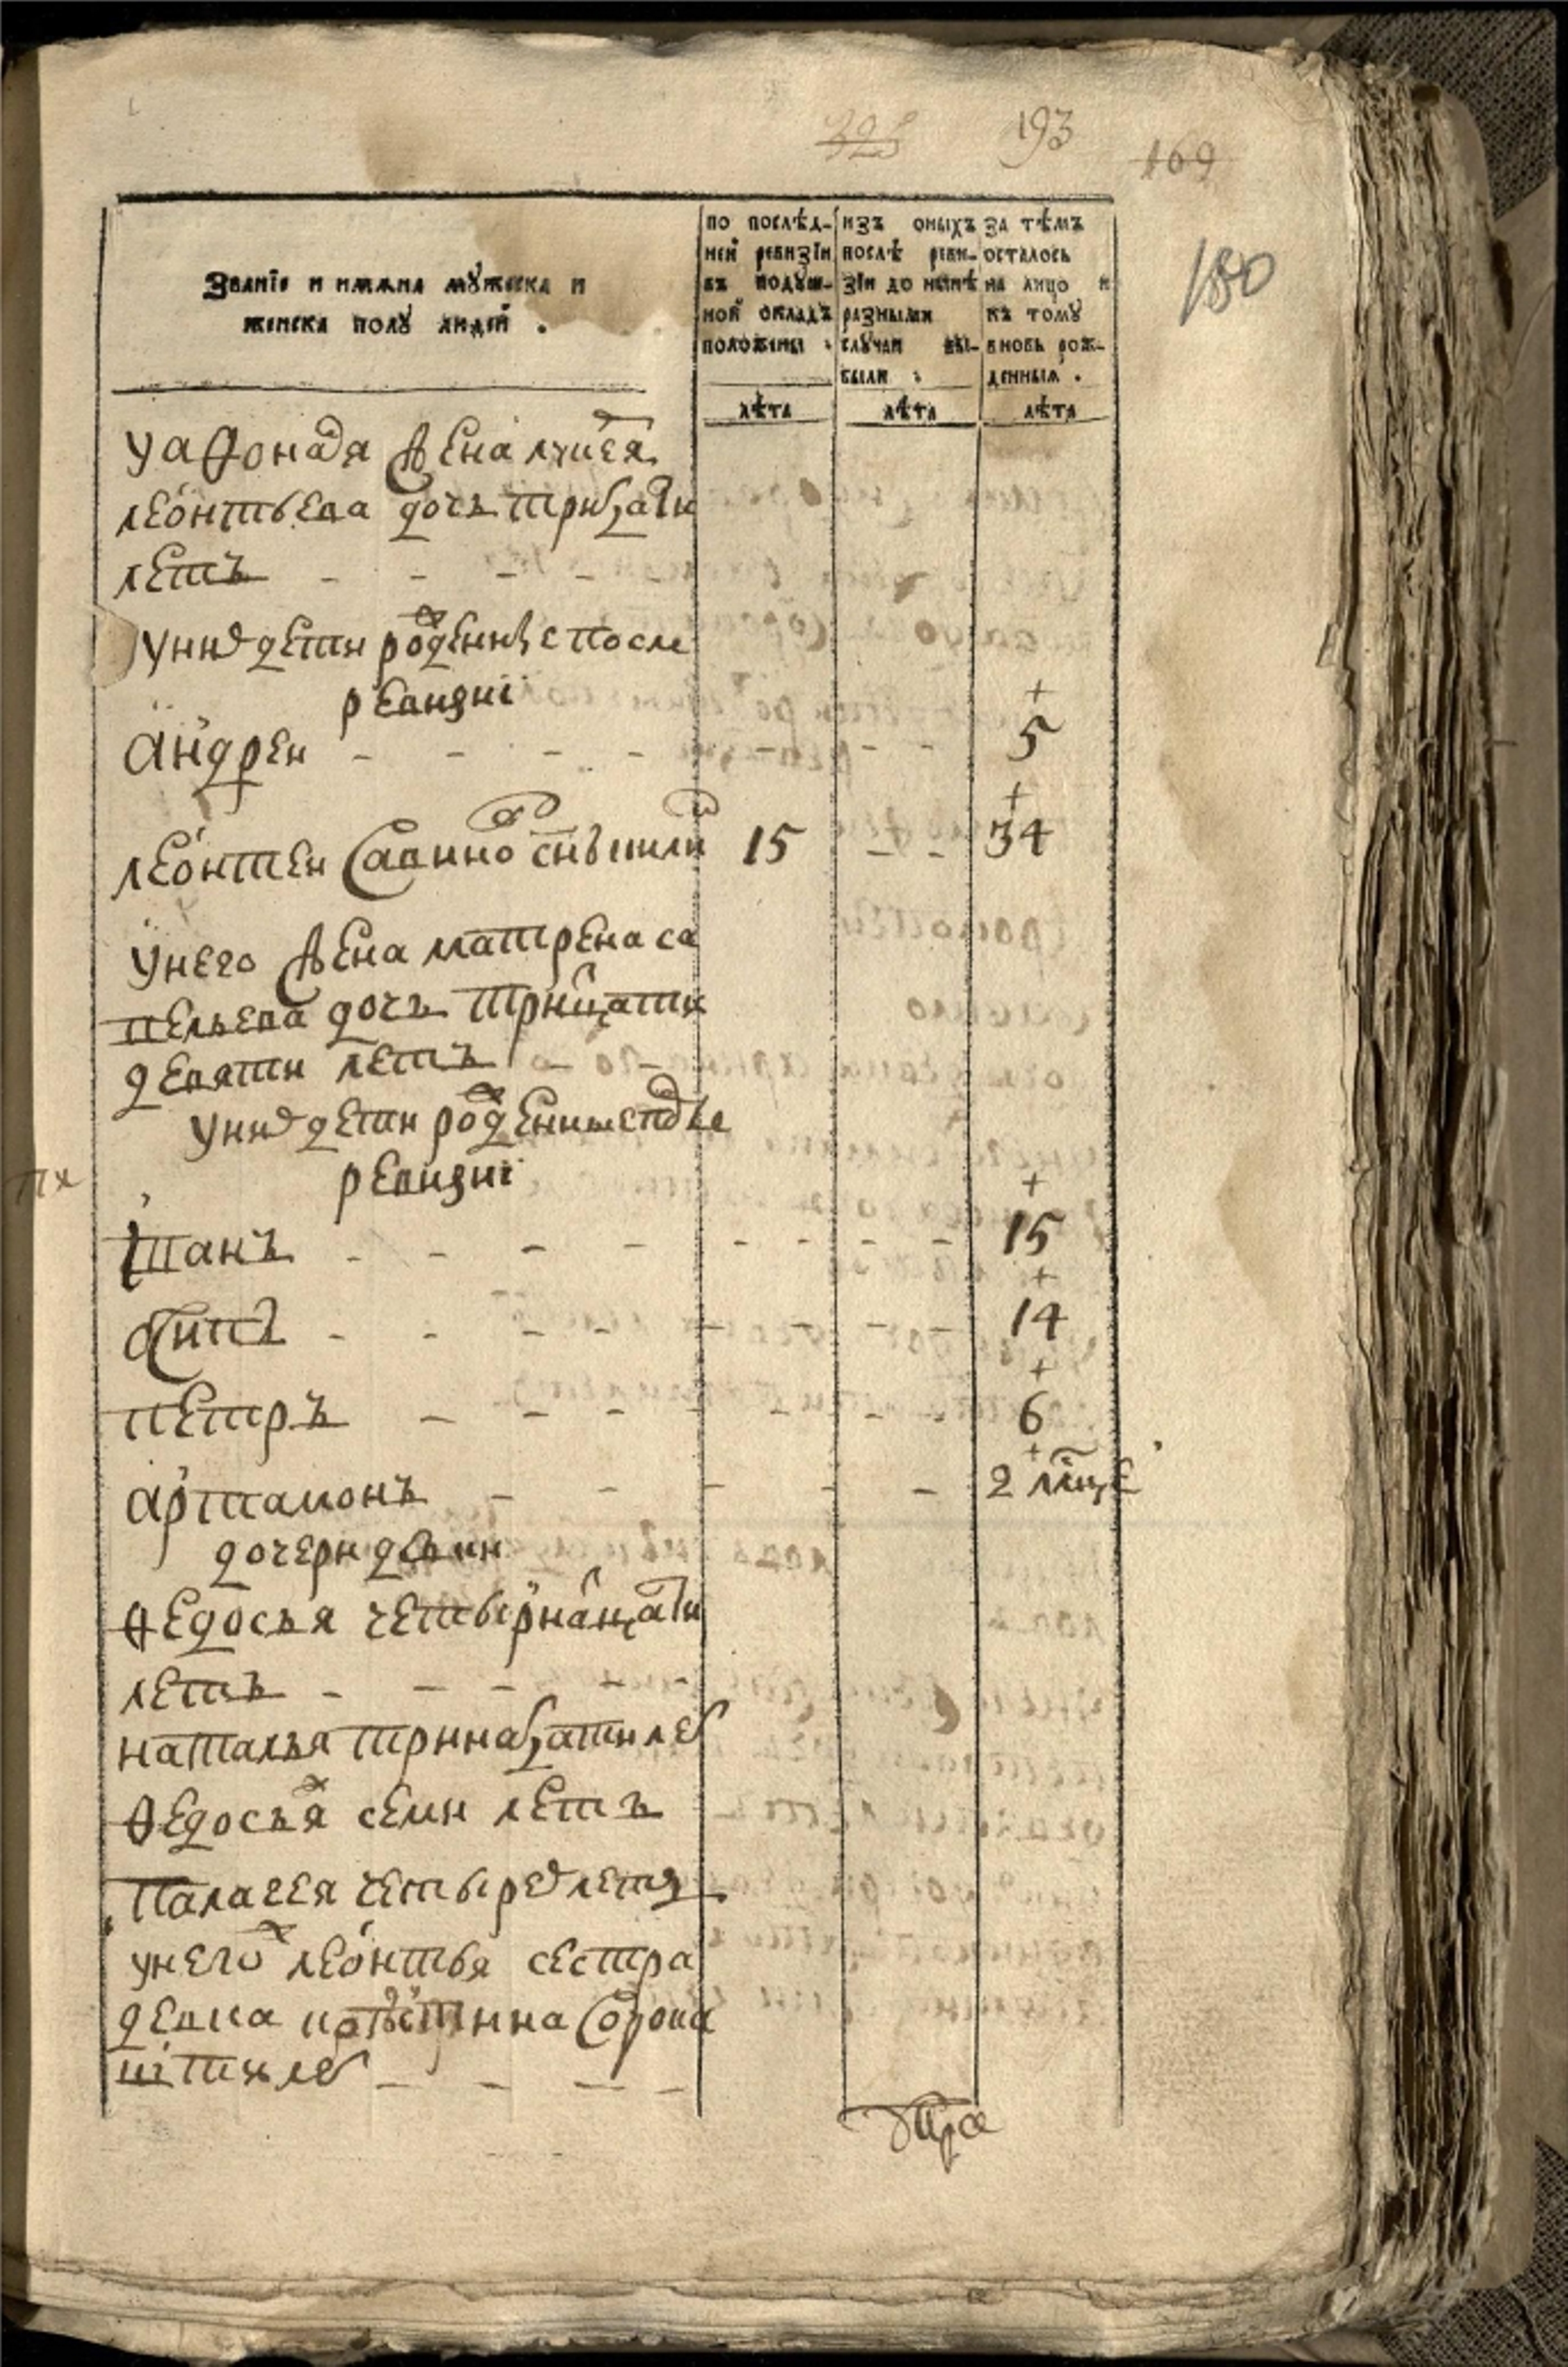 325 193 169
180
Званїе и имяна мꙋжеска и
женска полꙋ людїй .
по послѣд-
ней ревизїи
въ подꙋш-
ной окладъ
положены .
изъ оныхъ
послѣ реви-
зїи до нынѣ
разными
слꙋчаи вы-
были .
за тѣмъ
осталось
на лицо и
къ томꙋ
вновь рож-
денныя .
лѣта лѣта лѣта
у афонадя жена
леонтьева дочь трицати
летъ - - - -
уних дети рожденные после
ревизиї
андреи - - - - 5
леонтеи савинов снъ 15 - - 34
унего жена матрена са
вельева дочь трицати
девяти летъ
уних дети рожденные после
ревизиї
іванъ - - - - - - - - 15
осипъ - - - - - - - - 14
петръ - - - - - - - 6
артамонъ - - - - - 2 мсце
дочери девки
ѳедосья четырнацати
летъ - - - -
наталья тринацати лет
ѳедосья семи летъ
палагея четырех летъ
унего леонтья сестра
девка сорока
пяти лет - - - -